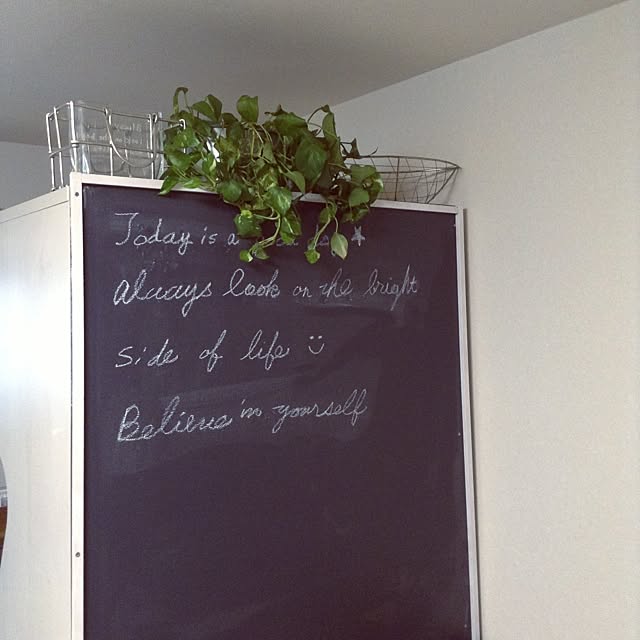 Today is a
Always look on the bright
side of life
Believe in yourself